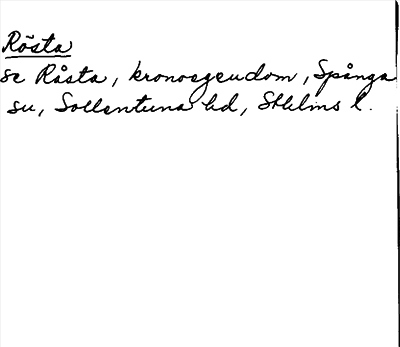 Rösta
se Råsta, kronoegendom, Spånga
sn, Sollentuna hd, Sthlms l.